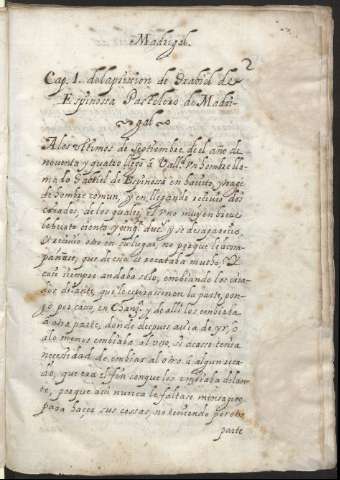 Madrigal.
Cap. 1. de la prission de Grabiel de
Espinossa Pastelero de Madri-
gal
A los vltimos de septiembre de el año de
nouenta y quatro llego à Vallᵈ Vn hombre lla-
mado Gabriel de Espinossa en hauito, y traje
de hombre comun, y en llegando reciuio dos
criados, de los quales el Vno muy en breue
le hurto ciento y onçe ducᵈ y se desaparecio,
y reciuio otro en su lugar, no porque le acom-
pañase, que de esto se recataua mucho, y
casi siempre andaba solo, embiando los cria-
dos delante, que le esperassen en la parte, pon-
go por caso, en Chançⁱ y de alli los embiaba
à otra parte, donde despues auia de yr, o
a lo menos embiaba al vno, si acasso tenia
necessidad de embiar al otro à algun reca-
do, que era el fin con que los embiaba delan-
te, porque assi nunca le faltase mensagero
para haçer sus cossas, no teniendo pero en
parte